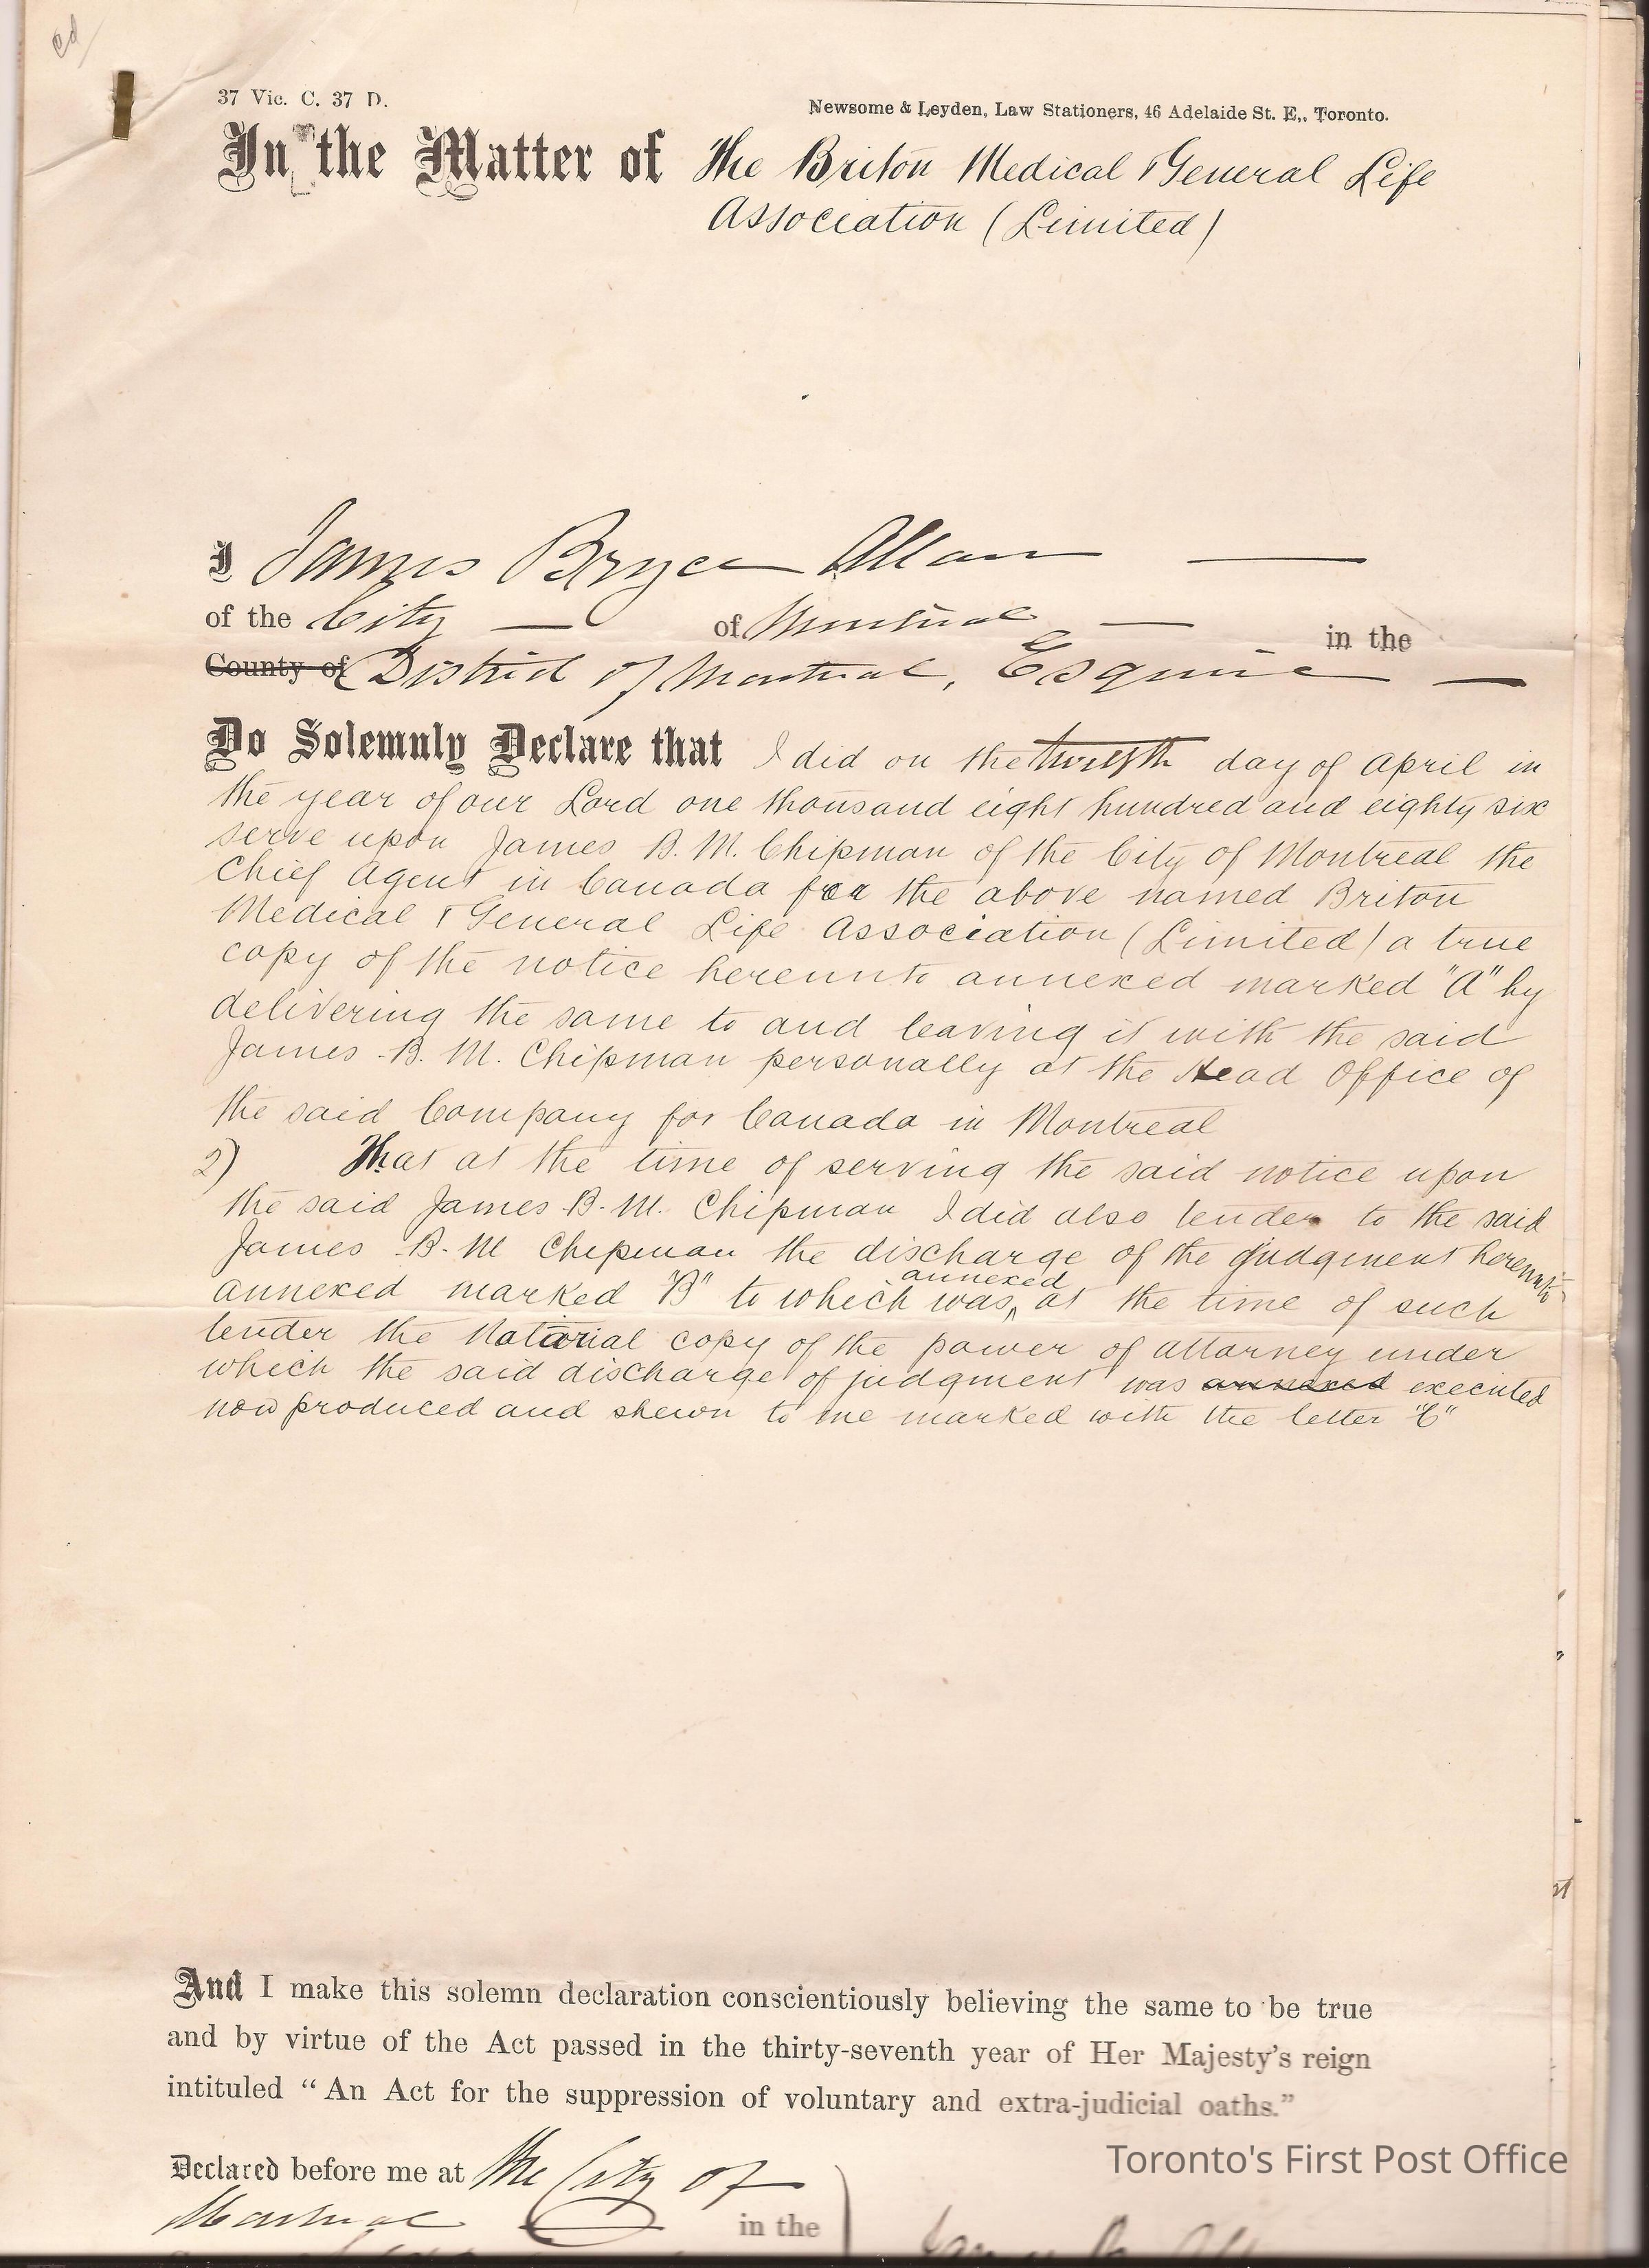 ed
37 Vic. C. 37 D.
Newsome & Leyden, Law Stationers, 46 Adelaide St. E,, Toronto.
In the Matter of The Briton Medical & General Life
Association (Limited)
I James Bryce Allan
of the City of Montreal in the
County of District of Montreal, Esquire
Do Solemnly Declare that I did on the twelfth day of April in
the year of our Lord one thousand eight hundred and eighty six
serve upon James B. M. Chipman of the City of Montreal the
Chief Agent in Canada for the above named Briton
Medical & General Life Association (Limited) a true
copy of the notice hereunto annexed marked "A" by
delivering the same to and leaving it with the said
James B. M. Chipman personally at the Head Office of
the said Company for Canada in Montreal
2) That at the time of serving the said notice upon
the said James B. M. Chipman I did also tender to the said
James B. M Chipman the discharge of the judgment hereunto
annexed
annexed marked "B" to which was at the time of such
tender the Notarial copy of the power of attorney under
which the said discharge of judgment was annexed executed
now produced and shewn to me marked with the letter "C"
And I make this solemn declaration conscientiously believing the same to be true
and by virtue of the Act passed in the thirty-seventh year of Her Majesty's reign
intituled "An Act for the suppression of voluntary and extra-judicial oaths."
Toronto's First Post Office
Declared before me at the City of
Montreal in the